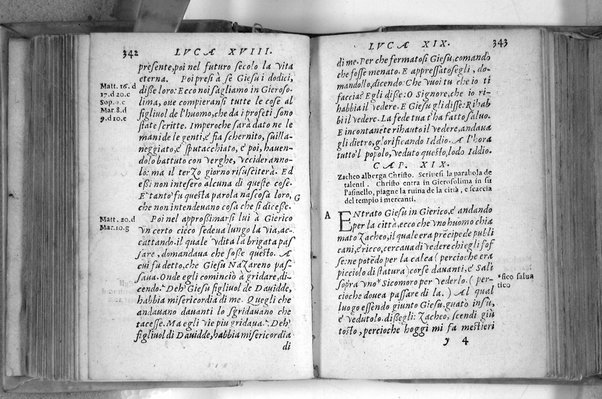 342 LVCÆ XVIII.
presente, poi nel futuro secolo la vita
eterna. Poi presi à se Giesu i dodici,
Matt. 16. d
disse loro: Ecco noi sagliamo in Gieroso-
17.d 20.c
lima, oue compieransi tutte le cose al
Sop.9.c
figliuol de l'huomo, che da i profeti sono
Mar 8.d
state scritte. Imperoche sarà dato ne le
9.d 10.e
mani de le genti, e fia schernito, suilla-
neggiato, e sputacchiato, e poi, hauen-
dolo battuto con verghe, vccideranno-
lo: ma il terzo giorno risusciterà. Ed
essi non intesero alcuna di queste cose.
E' tanto fu questa parola nascosa loro,
G
che non intendeuano cosa che si dicesse.
Matt. 20.d
Poi nel approssimarsi lui à Gierico
Mar.10.g
vn certo cieco sedeua lungo la via, ac-
cattando. il quale vdita la brigata pas-
sare, domandaua che fosse questo. A
cui fu detto, che Giesu Nazareno pas-
saua. Onde egli cominciò à gridare, di-
cendo. Deh Giesu figliuol de Dauidde,
habbia misericordia di me. Quegli che
andauano dauanti lo sgridauano che
tacesse. Ma egli vie piu gridaua. Deh
figliuol di Dauidde, habbia misericordia
di
LVCÆ XIX. 343
di me. Per che fermatosi Giesu, comando
che fosse menato. E appressatosegli, do-
mandollo, dicendo: Che vuoi tu che io ti
faccia? Egli disse: O Signore, che io ri-
habbia il vedere. E Giesu gli disse: Rihab
bi il vedere. La fede tua t'ha fatto saluo.
E incontanete rihauto il vedere, andaua
gli dietro, glorificando Iddio. A l'hora
tutto'l popolo, veduto questo, lodo Iddio.
CAP. XIX.
Zacheo alberga Christo. Scriuesi la parabola de
talenti. Christo entra in Gierosolima in su
l'asinello, piagne la ruina de la città, e scaccia
del tempio i mercanti.
A
ENtrato Giesu in Gierico, e andando
per la città, ecco che vno huomo chia
mato Zacheo, il quale era precipe de publi
cani, e ricco, cercaua di vedere chi egli fos
se: ne potédo per la calca (percioche era
picciolo di statura) corse dauanti, e Salì
sopra vno *Sicomoro per vederlo. (per-
*fico salua
cioche douea passare di la.) Al qual
tico
luogo essendo giunto Giesu, guatò in su,
e vedutolo, dissegli: Zacheo, scendi giu
tosto, percioche hoggi mi fa mestieri
y 4